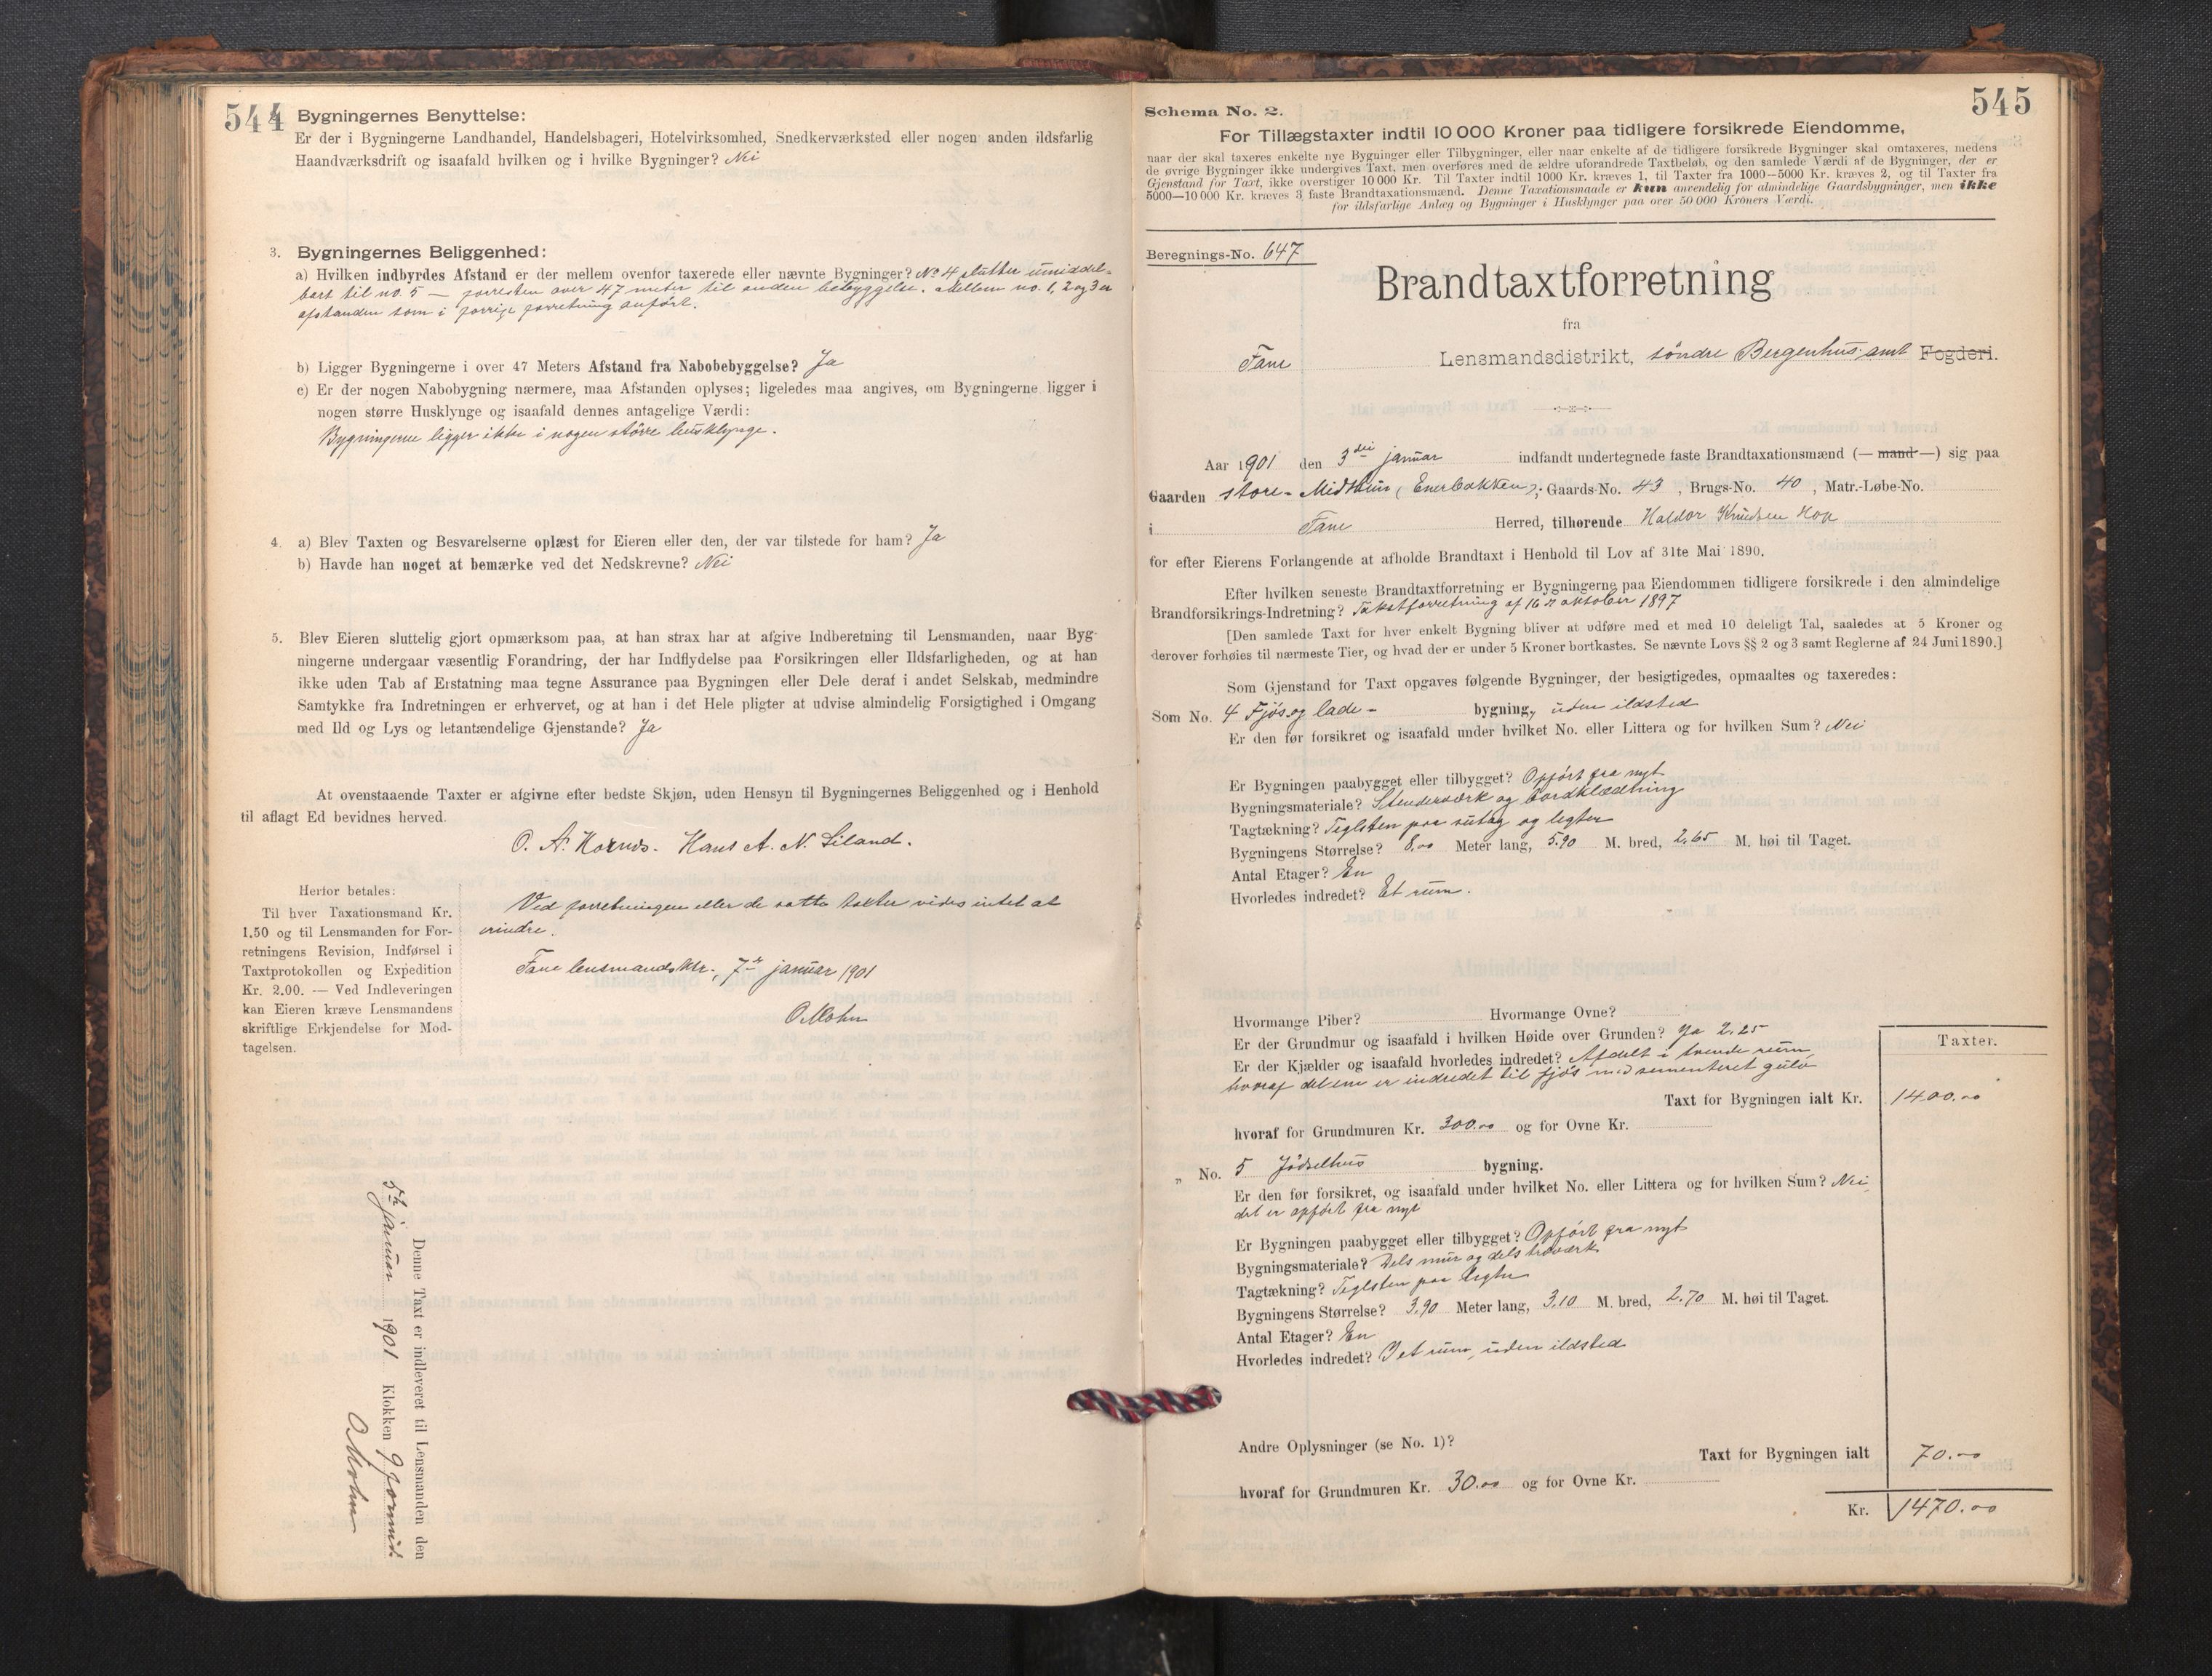 544
Bygningernes Benyttelse:
Er der i Bygningerne Landhandel, Handelsbageri, Hotelvirksomhed, Snedkerværksted eller nogen anden ildsfarlig
Haandværksdrift og isaafald hvilken og i hvilke Bygninger? Nei
3. Bygningernes Beliggenhed:
a) Hvilken indbyrdes Afstand er der mellem ovenfor taxerede eller nævnte Bygninger? No 4 slutter umiddel-
bart til no. 5 — forresten over 47 meter til anden bebyggelse. Mellem no. 1, 2 og 3 er
afstanden som i forrige forretning anført.
b) Ligger Bygningerne i over 47 Meters Afstand fra Nabobebyggelse? Ja
c) Er der nogen Nabobygning nærmere, maa Afstanden oplyses; ligeledes maa angives, om Bygningerne ligger i
nogen større Husklynge og isaafald dennes antagelige Værdi:
Bygningerne ligger ikke i nogen större husklynge.
4. a) Blev Taxten og Besvarelserne oplæst for Eieren eller den, der var tilstede for ham? Ja
b) Havde han noget at bemærke ved det Nedskrevne? Nei
5. Blev Eieren sluttelig gjort opmærksom paa, at han strax har at afgive Indberetning til Lensmanden, naar Byg-
ningerne undergaar væsentlig Forandring, der har Indflydelse paa Forsikringen eller Ildsfarligheden, og at han
ikke uden Tab af Erstatning maa tegne Assurance paa Bygningen eller Dele deraf i andet Selskab, medmindre
Samtykke fra Indretningen er erhvervet, og at han i det Hele pligter at udvise almindelig Forsigtighed i Omgang
med Ild og Lys og letantændelige Gjenstande? Ja
At ovenstaaende Taxter er afgivne efter bedste Skjøn, uden Hensyn til Bygningernes Beliggenhed og i Henhold
til aflagt Ed bevidnes herved.
O. A. Hans A. N. Liland.
Herfor betales:
Til hver Taxationsmand Kr.
1.50 og til Lensmanden for For-
retningens Revision, Indførsel i
Taxtprotokollen og Expedition
Kr. 2.00. — Ved Indleveringen
kan Eieren kræve Lensmandens
skriftlige Erkjendelse for Mod-
tagelsen.
Ved forretningen eller de satte takster vides intet at
erindre.
Fane lensmandsktr., 7de januar 1901
O Mohn
Denne Taxt er indleveret til Lensmanden den
5te januar 1901 Klokken 9 formid.
O Mohn
545
Schema No. 2.
For Tillægstaxter indtil 10 000 Kroner paa tidligere forsikrede Eiendomme,
naar der skal taxeres enkelte nye Bygninger eller Tilbygninger, eller naar enkelte af de tidligere forsikrede Bygninger skal omtaxeres, medens
de øvrige Bygninger ikke undergives Taxt, men overføres med de ældre uforandrede Taxtbeløb, og den samlede Værdi af de Bygninger, der er
Gjenstand for Taxt, ikke overstiger 10 000 Kr. Til Taxter indtil 1000 Kr. kræves 1, til Taxter fra 1000—5000 Kr. kræves 2, og til Taxter fra
5000—10 000 Kr. kræves 3 faste Brandtaxationsmænd. Denne Taxationsmaade er kun anvendelig for almindelige Gaardsbygninger, men ikke
for ildsfarlige Anlæg og Bygninger i Husklynger paa over 50 000 Kroners Værdi.
Beregnings-No. 647
Brandtaxtforretning
fra
Fane Lensmandsdistrikt, söndre Bergenhus amt Fogderi.
Aar 1901 den 3die januar indfandt undertegnede faste Brandtaxationsmænd (— mand —) sig paa
Gaarden store-Midthun (Enerbakken); Gaards-No. 43, Brugs-No. 40, Matr.-Løbe-No.
i Fane Herred, tilhørende Haldor Knudsen Hop
for efter Eierens Forlangende at afholde Brandtaxt i Henhold til Lov af 31te Mai 1890.
Efter hvilken seneste Brandtaxtforretning er Bygningerne paa Eiendommen tidligere forsikrede i den almindelige
Brandforsikrings-Indretning? Takstforretning af 16de oktober 1897
[Den samlede Taxt for hver enkelt Bygning bliver at udføre med et med 10 deleligt Tal, saaledes at 5 Kroner og
derover forhøies til nærmeste Tier, og hvad der er under 5 Kroner bortkastes. Se nævnte Lovs §§ 2 og 3 samt Reglerne af 24 Juni 1890.]
Som Gjenstand for Taxt opgaves følgende Bygninger, der besigtigedes, opmaaltes og taxeredes:
Som No. 4 Fjös og lade- bygning, uden ildsted
Er den før forsikret og isaafald under hvilket No. eller Littera og for hvilken Sum? Nei
Er Bygningen paabygget eller tilbygget? Opfört fra nyt
Bygningsmateriale? Stenderværk og bordklædning
Tagtækning? Teglsten paa sutag og legter
Bygningens Størrelse? 8,00 Meter lang, 5.90 M. bred, 2,65 M. høi til Taget.
Antal Etager? En
Hvorledes indredet? Et rum.
Hvormange Piber? Hvormange Ovne?
Er der Grundmur og isaafald i hvilken Høide over Grunden? Ja 2,25
Er der Kjælder og isaafald hvorledes indredet? Afdelt i tvende rum,
hvoraf det ene er indredet til fjös med sementeret gulv
Taxter.
Taxt for Bygningen ialt Kr. 1400.00
hvoraf for Grundmuren Kr. 300.00 og for Ovne Kr.
„ No. 5 Jödselhus bygning.
Er den før forsikret, og isaafald under hvilket No. eller Littera og for hvilken Sum? Nei,
det er opfört fra nyt
Er Bygningen paabygget eller tilbygget? Opfört fra nyt
Bygningsmateriale? Dels mur og dels træværk
Tagtækning? Teglsten paa legter
Bygningens Størrelse? 3,90 Meter lang, 3,10 M. bred, 2,70 M. høi til Taget.
Antal Etager? En
Hvorledes indredet? I et rum, uden ildsted
Andre Oplysninger (se No. 1)?
Taxt for Bygningen ialt 70.00
hvoraf for Grundmuren Kr. 30.00 og for Ovne Kr.
Kr. 1470.00